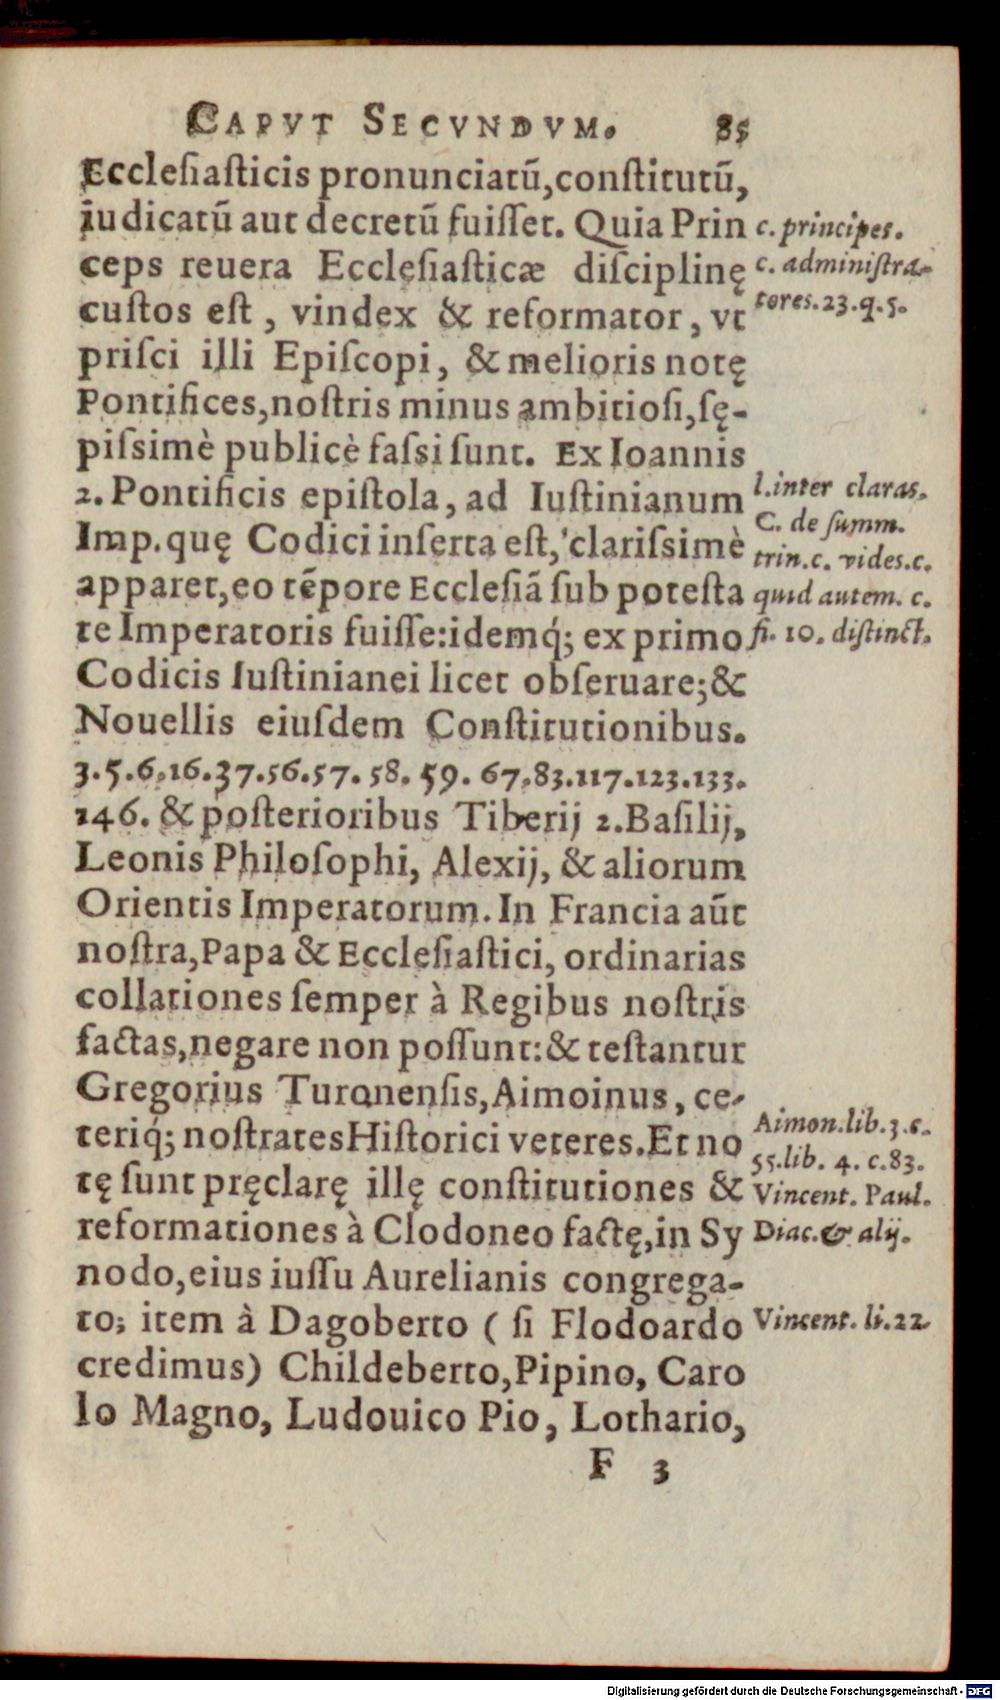 CAPVT SECVNDVM. 85
Eccleſiaſticis pronunciatū,conſtitutū,
iudicatū aut decretū fuiſſet. Quia Prin
ceps reuera Eccleſiaſticæ diſciplinę
cuſtos eſt, vindex & reformator, vt
priſci illi Epiſcopi, & melioris notę
Pontifices,noſtris minus ambitioſi,ſę-
piſsimè publicè faſsi ſunt. Ex Ioannis
2. Pontificis epiſtola, ad Iuſtinianum
Imp.quę Codici inſerta eſt, clariſsimè
apparet,eo tēpore Eccleſiā ſub poteſta
te Imperatoris fuiſſe:idemq́; ex primo
Codicis Iuſtinianei licet obſeruare;&
Nouellis eiuſdem Conſtitutionibus.
3.5.6.16.37.56.57.58.59.67.83.117.123.133.
146. & poſterioribus Tiberij 2.Baſilij,
Leonis Philoſophi, Alexij, & aliorum
Orientis Imperatorum. In Francia aūt
noſtra,Papa & Eccleſiaſtici, ordinarias
collationes ſemper à Regibus noſtris
factas,negare non poſſunt:& teſtantur
Gregorius Turonenſis,Aimoinus, ce-
teriq́; noſtrates Hiſtorici veteres.Et no
tę ſunt pręclarę illę conſtitutiones &
reformationes à Clodoneo factę,in Sy
nodo,eius iuſſu Aurelianis congrega-
to; item à Dagoberto ( ſi Flodoardo
credimus) Childeberto,Pipino, Caro
lo Magno, Ludouico Pio, Lothario,
F 3
c. principes.
c. adminiſtra-
tores.23.q.5.
l.inter claras.
C. de ſumm.
trin.c. vides.c.
quid autem. c.
fi. 10. diſtinct.
Aimon.lib.3.c.
55.lib. 4. c.83.
Vincent. Paul.
Diac.& alij.
Vincent. li.22
Digitalisierung gefördert durch die Deutsche Forschungsgemeinschaft - DFG